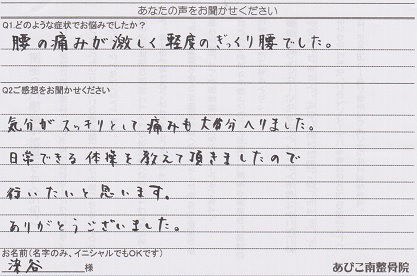 あなたの声をお聞かせください
Q1.どのような症状でお悩みでしたか?
腰の痛みが激しく軽度のぎっくり腰でした。
Q2ご感想をお聞かせください
気分がスッキリとして痛みも大部分へりました。
日常できる体操を教えて頂きましたので
行いたいと思います。
ありがとうございました。
お名前(名字のみ、イニシャルでもOKです)
染谷 様
あびこ南整骨院